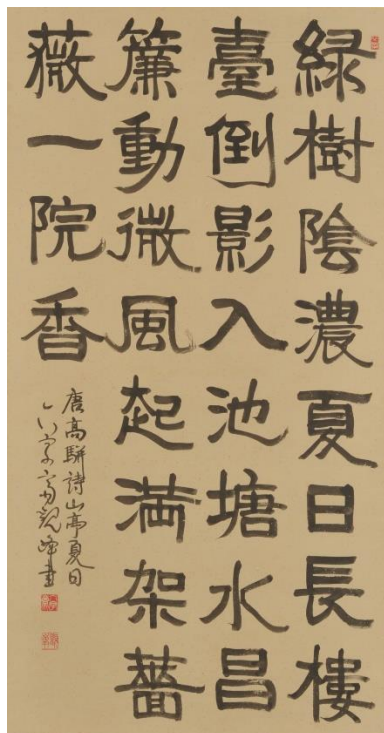 緑樹陰濃夏日長樓
臺倒影入池塘水昌
簾動微風起満架薔
薇一院香
唐高駢詩山亭夏日
峰書